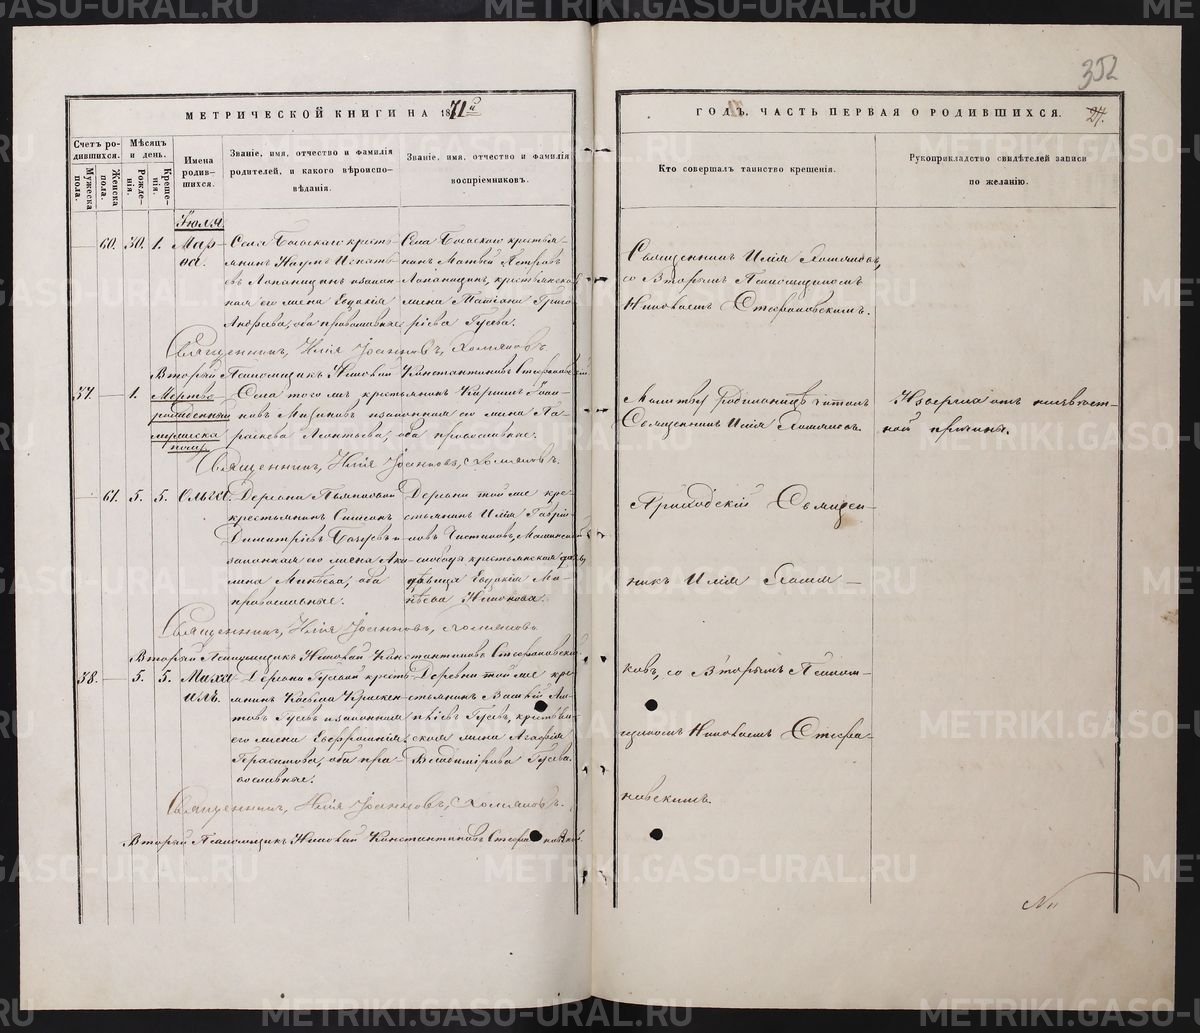 352
МЕТРИЧЕСКОЙ КНИГИ НА 1871й
ГОДЪ, ЧАСТЬ ПЕРВАЯ О РОДИВШИХСЯ.
27.
Счетъ родившихся.
Мужеска пола.
Женска пола.
Мѣсяцъ и день.
Рожденія.
Крещенія.
Имена родившихся.
Званіе, имя, отчество и фамилія
родителей, и какого вѣроиспо-
вѣданія.
Званіе, имя, отчество и фамилія
воспріемниковъ.
Кто совершалъ таинство крещенія.
Рукоприкладство свидѣтелей записи
по желанію.
Іюля.
60. 30. 1. Мар
ѳа.
Села кресть-
янинъ Наумъ Игнать-
евъ Лопаницынъ и закон-
ная его жена Евдокія
Андреева, оба православные.
Села крестья-
нинъ Матвѣй Петровъ
Лопаницынъ, крестьянская
жена Татіана Григо
рьева Гусева.
Священникъ Илія Хомяковъ,
со Вторымъ Псаломщикомъ
Николаемъ Стефановскимъ.
Священникъ, Илія Іоанновъ, Хомяковъ.
Второй Псаломщикъ Николай Константиновъ Стефановскій.
37. 1. Мертво
рожденный
мужеска
пола.
Села того жъ крестьянинъ Кирилъ Іоан-
новъ и законная его жена Па-
раскева Леонтьева, оба православные.
Молитву родильницѣ читалъ
Священникъ Илія Хомяковъ.
отъ неизвѣст-
ной причины.
Священникъ, Илія Іоанновъ, Хомяковъ.
61. 5. 5. Ольга.
Деревни
крестьянинъ
Димитріевъ и
законная его жена Аку
лина Минѣева, оба
православные.
Деревни той же кре-
стьянинъ Илія Гаврі-
ловъ Чистяковъ,
слободы крестьянская
дѣвица Евдокія Ми-
нѣева
Приходскій Священ-
никъ Илія Хомя-
ковъ, со Вторымъ Псалом-
щикомъ Николаемъ Стефа-
новскимъ.
Священникъ, Илія Іоанновъ, Хомяковъ.
Второй Псаломщикъ Николай Константиновъ Стефановскій.
38. 5. 5. Миха
илъ.
Деревни Гусевой кресть-
янинъ Косьма
Гусевъ и законная
его жена Евфросинія
Герасимова, оба пра-
вославные.
Деревни той же кре-
стьянинъ Василій
Гусевъ, крестьян-
ская жена Агафія
Владимірова Гусева.
Священникъ, Илія Іоанновъ, Хомяковъ.
Второй Псаломщикъ Николай Константиновъ Стефановскій.
METRIKI.GASO-URAL.RU